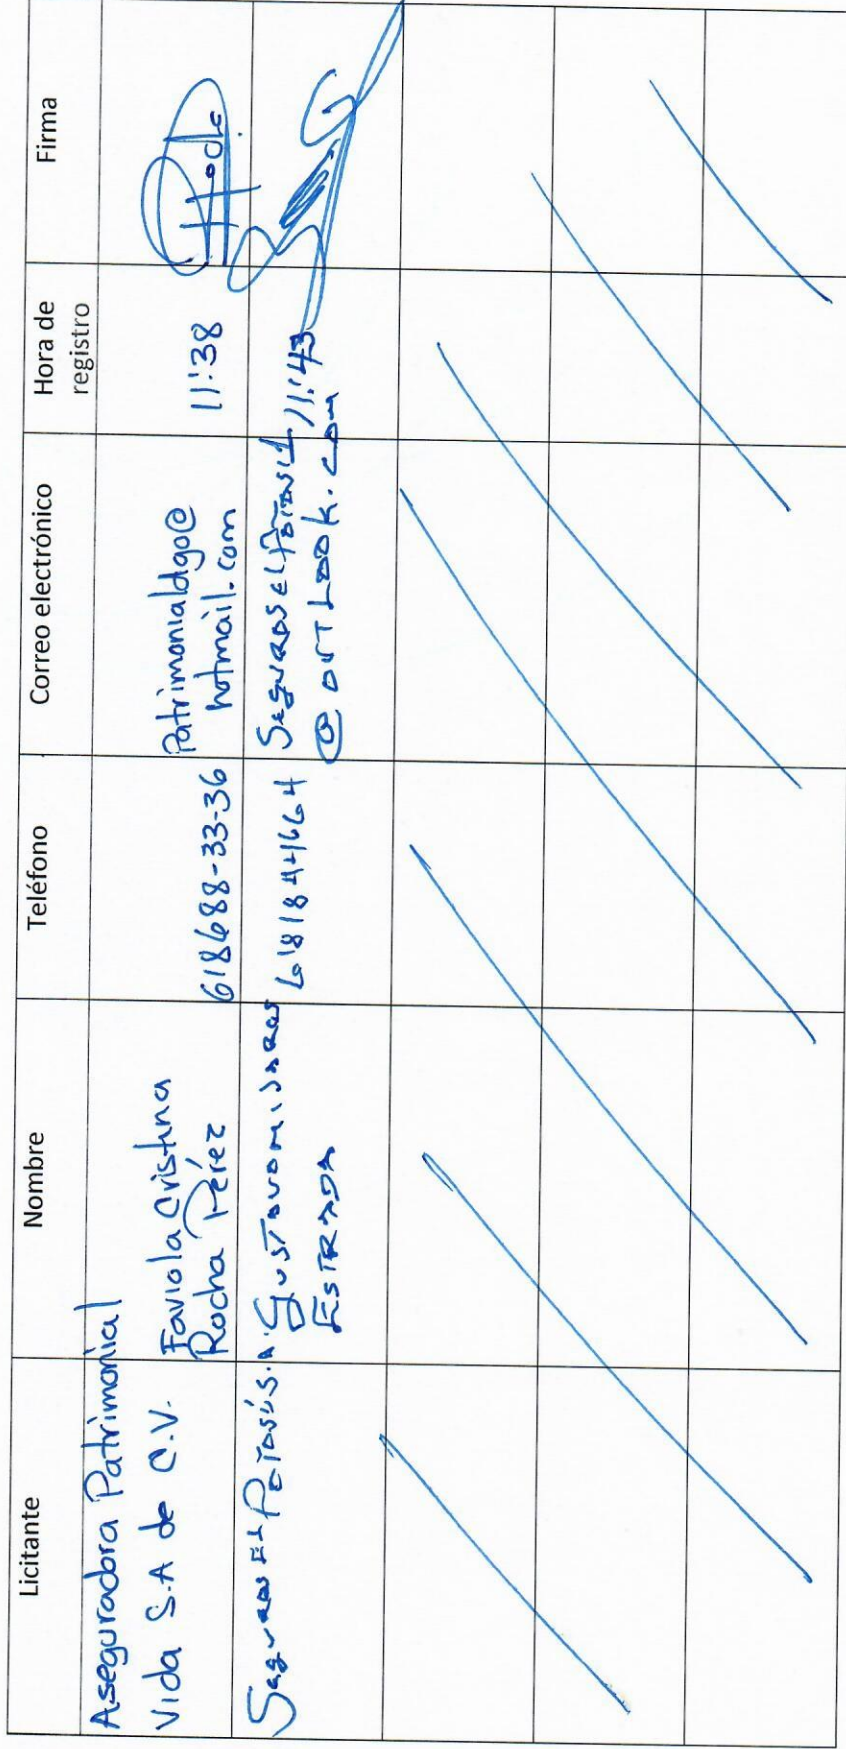 Licitante Nombre Teléfono Correo electrónico Hora de registro Firma
Aseguradora Patrimonial
Vida S.A de C.V. Faviola Cristina
Rocha Pérez 618688-33-36 Patrimonialdgo@
hotmail.com 11:38
Seguros El Potosí S.A. Gustavo
Estrada 6181844664 Seguroselpotosi1
@outlook.com 11:43